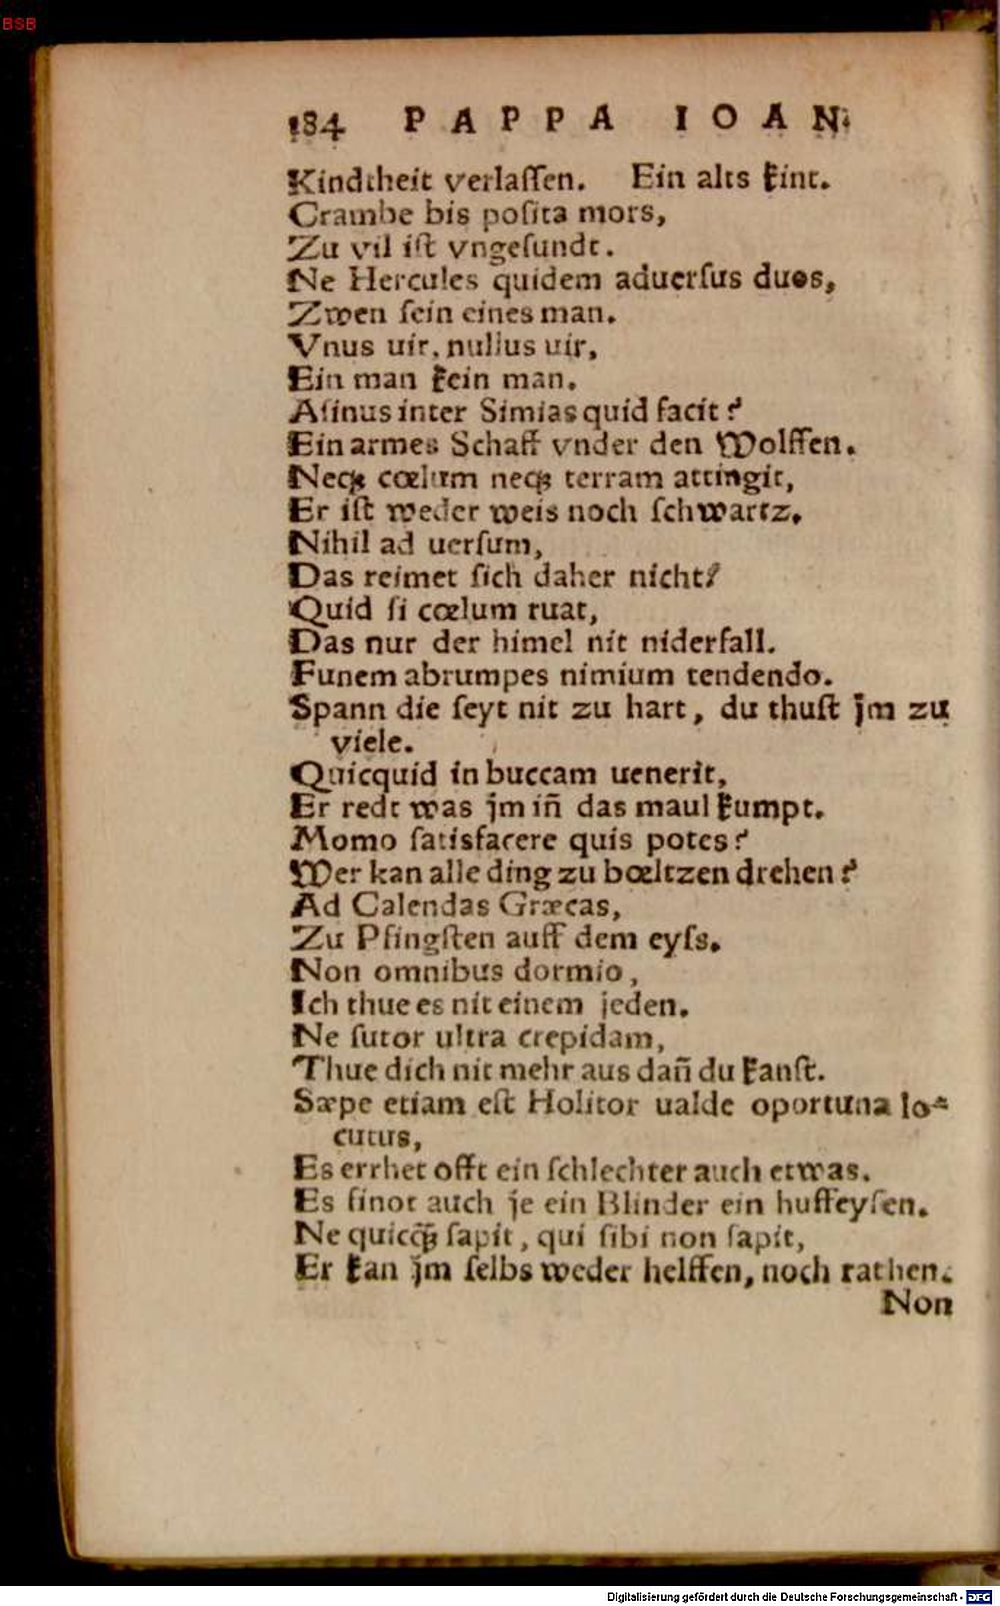 BSB
184 PAPPA IOAN.
Kindtheit verlaſſen. Ein alts kint.
Crambe bis poſita mors,
Zu vil iſt vngeſundt.
Ne Hercules quidem aduerſus duos,
Zwen ſein eines man.
Vnus uir, nullus uir,
Ein man kein man.
Aſinus inter Simias quid facit?
Ein armes Schaff vnder den Wolffen.
Neqꝫ cœlum neqꝫ terram attingit,
Er iſt weder weis noch ſchwartz.
Nihil ad uerſum,
Das reimet ſich daher nicht!
Quid ſi cœlum ruat,
Das nur der himel nit niderfall.
Funem abrumpes nimium tendendo.
Spann die ſeyt nit zu hart, du thuſt jm zu
viele.
Quicquid in buccam uenerit,
Er redt was jm iñ das maul kumpt.
Momo ſatisfacere quis potes?
Wer kan alle ding zu bœltzen drehen?
Ad Calendas Græcas,
Zu Pfingſten auff dem eyſs.
Non omnibus dormio,
Ich thue es nit einem jeden.
Ne ſutor ultra crepidam,
Thue dich nit mehr aus dañ du kanſt.
Sæpe etiam eſt Holitor ualde oportuna lo-
cutus,
Es errhet offt ein ſchlechter auch etwas.
Es finot auch je ein Blinder ein huffeyſen.
Ne quicq̃ꝫ ſapit, qui ſibi non ſapit,
Er kan jm ſelbs weder helffen, noch rathen.
Non
Digitalisierung gefördert durch die Deutsche Forschungsgemeinschaft - DFG